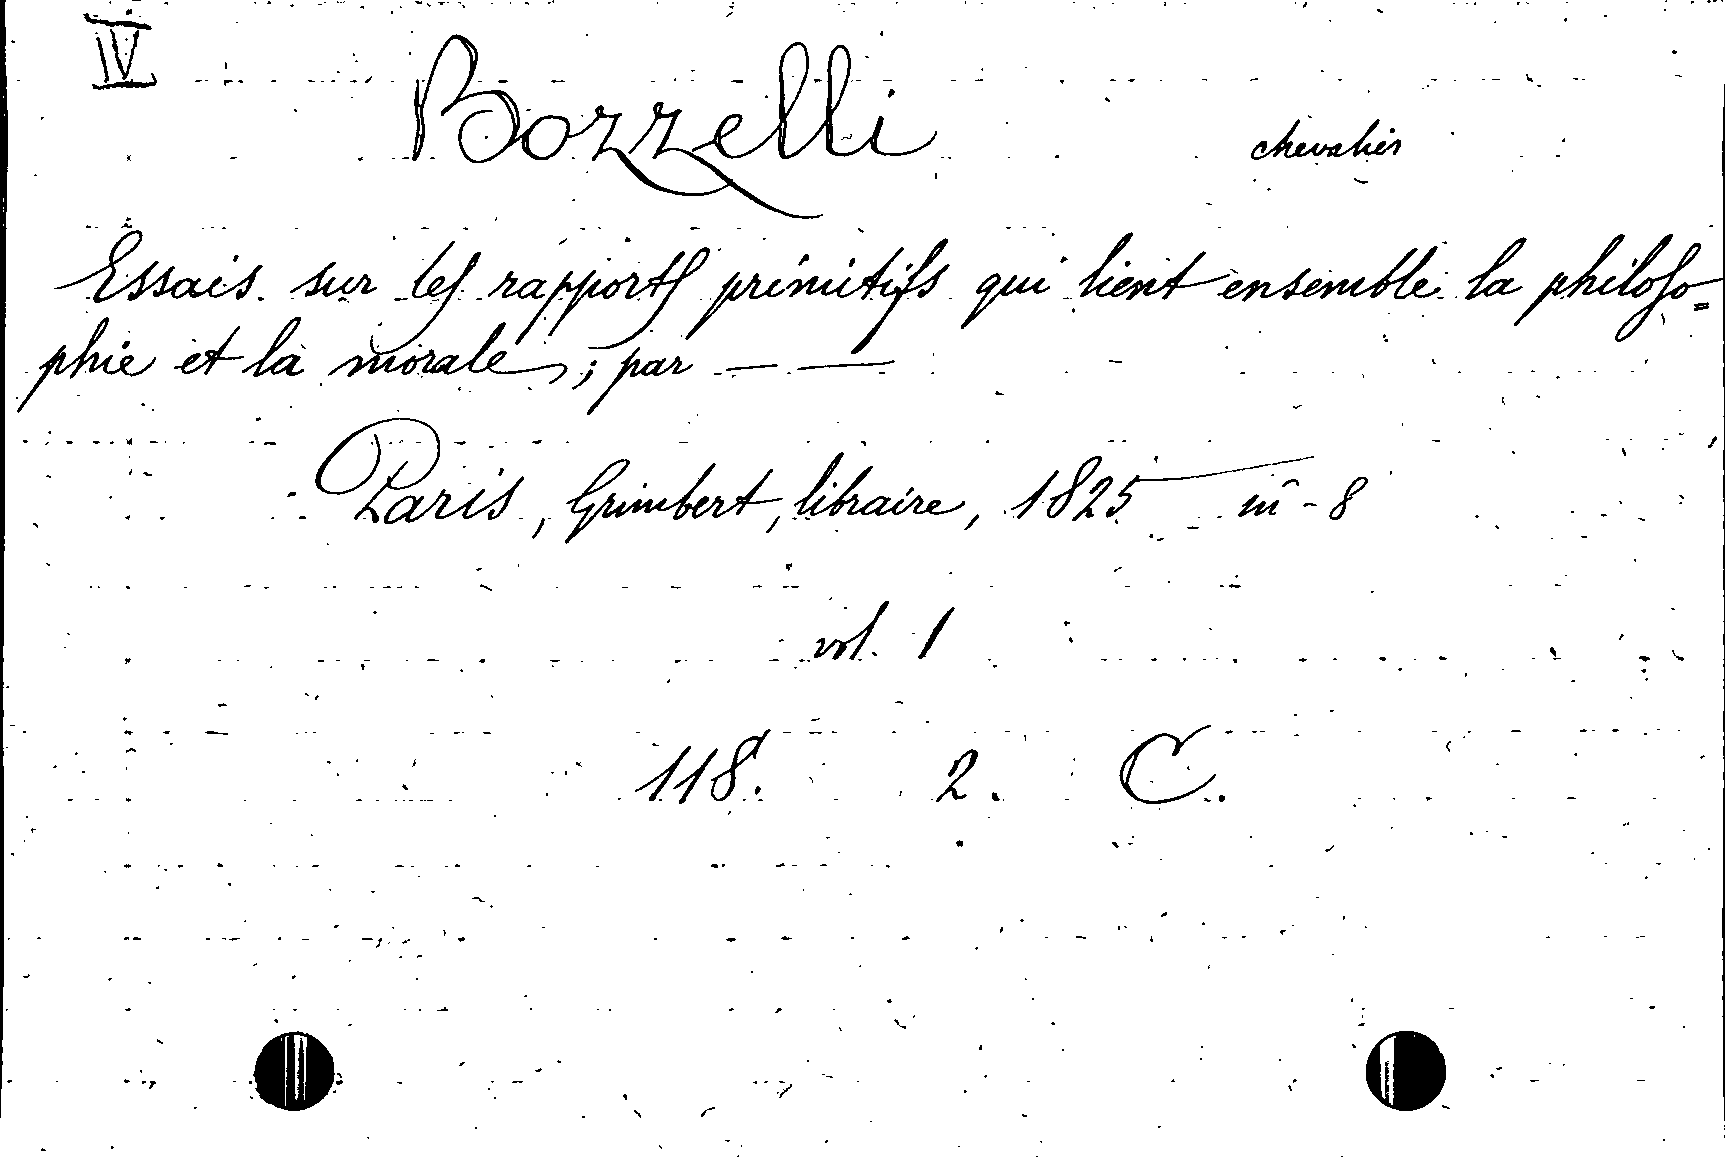 IV
Bozzelli chevalier
Essais sur les rapports primitifs qui lient ensemble la philoso=
phie et la morale ; par — —
Paris, Grimbert, libraire, 1825 in-8
vol. 1
118. 2. C.